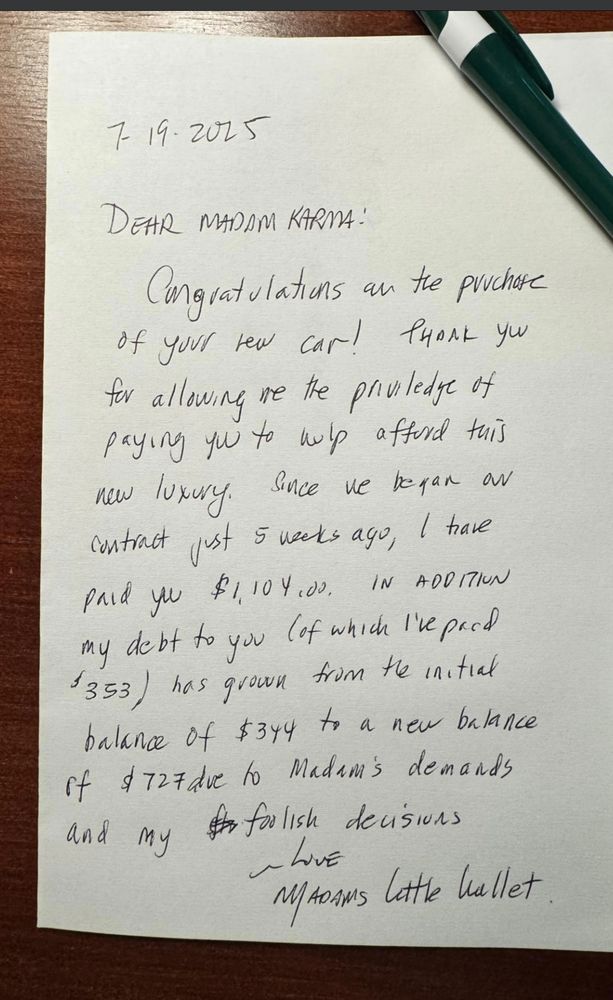 7-19-2025
DEAR MADAM KARMA:
Congratulations on the purchase
of your new car! THANK you
for allowing me the priviledge of
paying you to help afford this
new luxury. Since we began our
contract just 5 weeks ago, I have
paid you $1,104.00. IN ADDITION
my debt to you (of which I've paid
$353) has grown from the initial
balance of $344 to a new balance
of $727 due to Madam's demands
and my foolish decisions
~ LOVE
MADAMS little wallet.